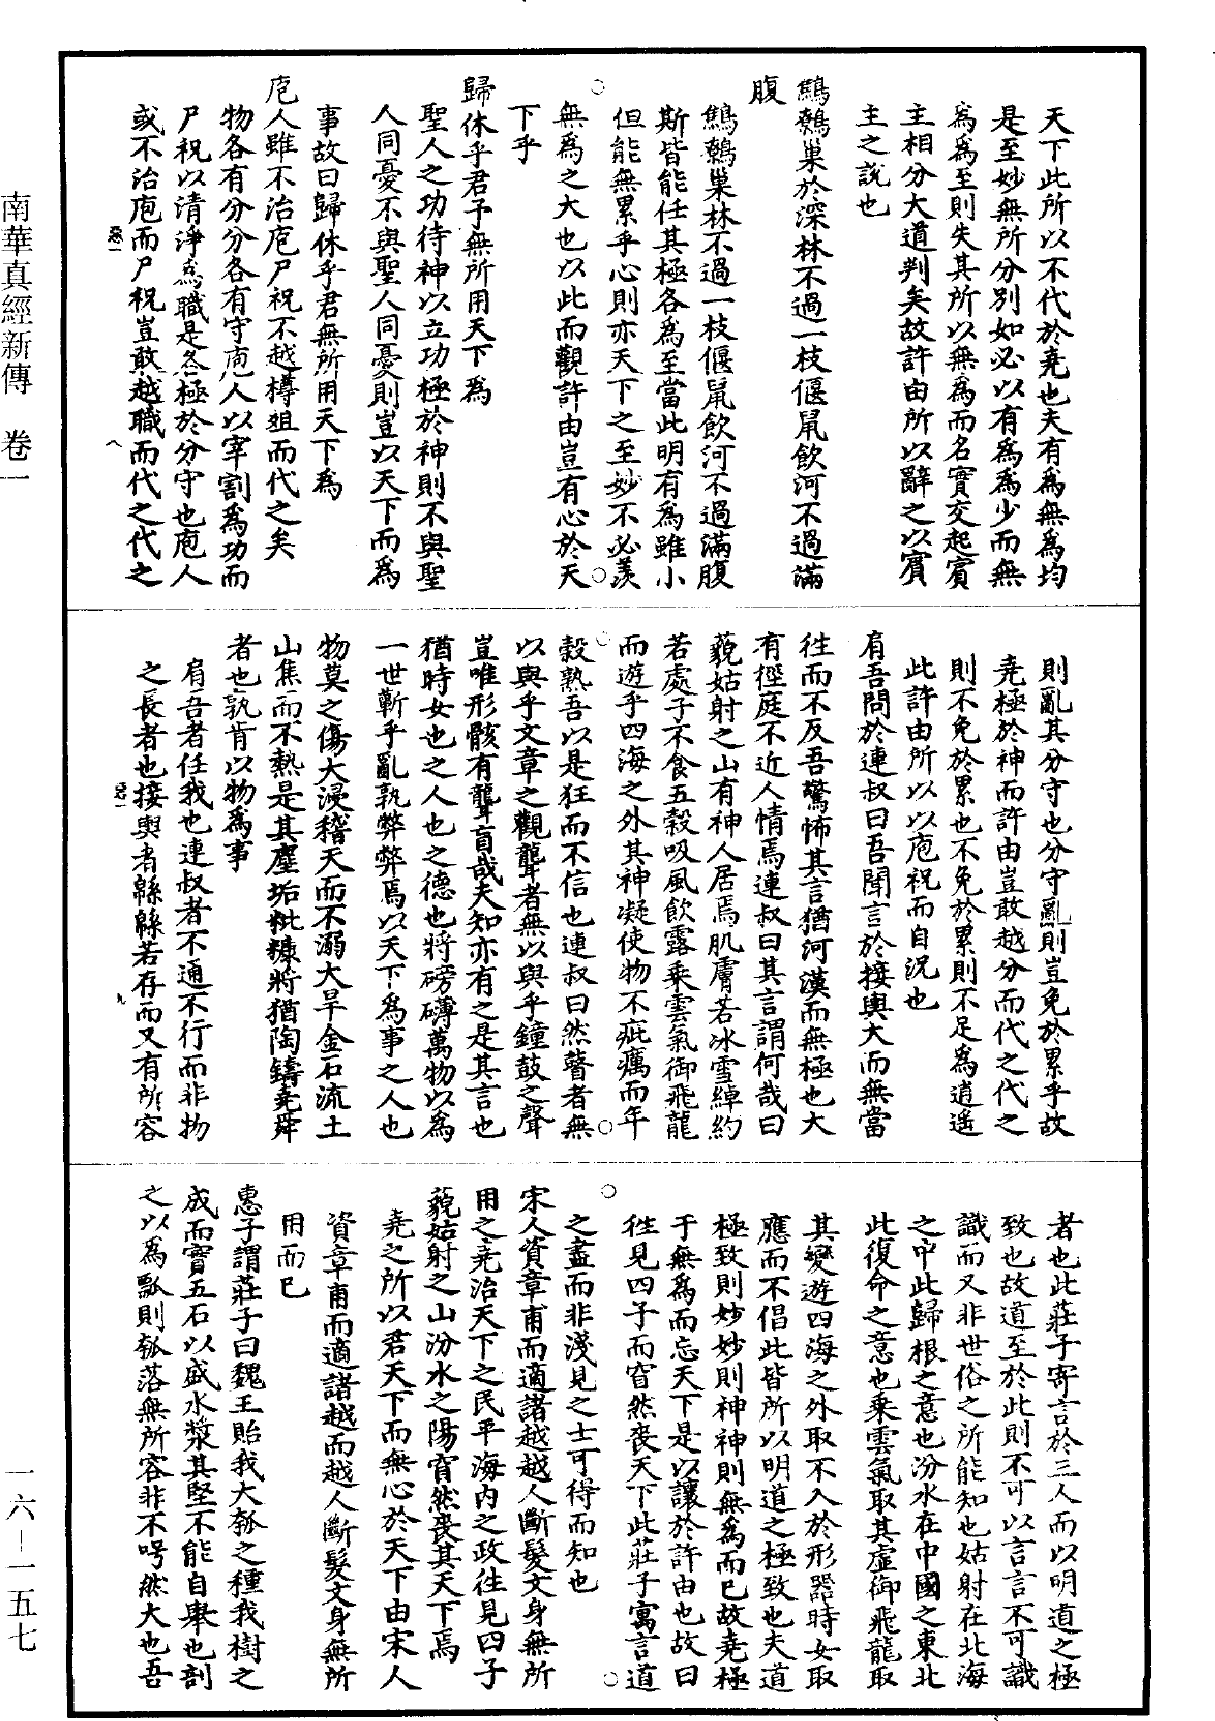 天下此所以不代於堯也夫有為無為均
是至妙無所分別如必以有為為少而無
為為至則失其所以無為而名實交起賓
主相分大道判矣故許由所以辭之以賓
主之說也
鷦鷯巢於深林不過一枝偃鼠飲河不過滿
腹
鷦鷯巢林不過一枝偃鼠飲河不過滿腹
斯皆能任其極各為至當此明有為雖小
但能無累乎心則亦天下之至妙不必羨
無為之大也以此而觀許由豈有心於天
下乎
歸休乎君予無所用天下為
聖人之功待神以立功極於神則不與聖
人同憂不與聖人同憂則豈以天下而為
事故曰歸休乎君無所用天下為
庖人雖不治庖尸祝不越樽俎而代之矣
物各有分分各有守庖人以宰割為功而
尸祝以清淨為職是各極於分守也庖人
或不治庖而尸祝豈敢越職而代之代之
則亂其分守也分守亂則豈免於累乎故
堯極於神而許由豈敢越分而代之代之
則不免於累也不免於累則不足為逍遙
此許由所以以庖祝而自況也
肩吾問於連叔曰吾聞言於接輿大而無當
往而不反吾驚怖其言猶河漢而無極也大
有徑庭不近人情焉連叔曰其言謂何哉曰
藐姑射之山有神人居焉肌膚若冰雪綽約
若處子不食五穀吸風飲露乘雲氣御飛龍
而遊乎四海之外其神凝使物不疵癘而年
穀熟吾以是狂而不信也連叔曰然瞽者無
以與乎文章之觀聾者無以與乎鐘鼓之聲
豈唯形骸有聾盲哉夫知亦有之是其言也
猶時女也之人也之德也將磅礴萬物以為
一世蘄乎亂孰弊弊焉以天下為事之人也
物莫之傷大浸稽天而不溺大旱金石流土
山焦而不熱是其塵垢粃糠將猶陶鑄堯舜
者也孰肯以物為事
肩吾者任我也連叔者不通不行而非物
之長者也接輿者緜緜若存而又有所容
者也此莊子寄言於三人而以明道之極
致也故道至於此則不可以言言不可識
識而又非世俗之所能知也姑射在北海
之中此歸根之意也汾水在中國之東北
此復命之意也乘雲氣取其虛御飛龍取
其變遊四海之外取不入於形器時女取
應而不倡此皆所以明道之極致也夫道
極致則妙妙則神神則無為而已故堯極
于無為而忘天下是以讓於許由也故曰
往見四子而窅然喪天下此莊子寓言道
之盡而非淺見之士可得而知也
宋人資章甫而適諸越越人斷髮文身無所
用之堯治天下之民平海內之政往見四子
藐姑射之山汾水之陽窅然喪其天下焉
堯之所以君天下而無心於天下由宋人
資章甫而適諸越而越人斷髮文身無所
用而已
惠子謂莊子曰魏王貽我大瓠之種我樹之
成而實五石以盛水漿其堅不能自舉也剖
之以為瓢則瓠落無所容非不呺然大也吾
南華真經新傳 卷一
一六－一五七